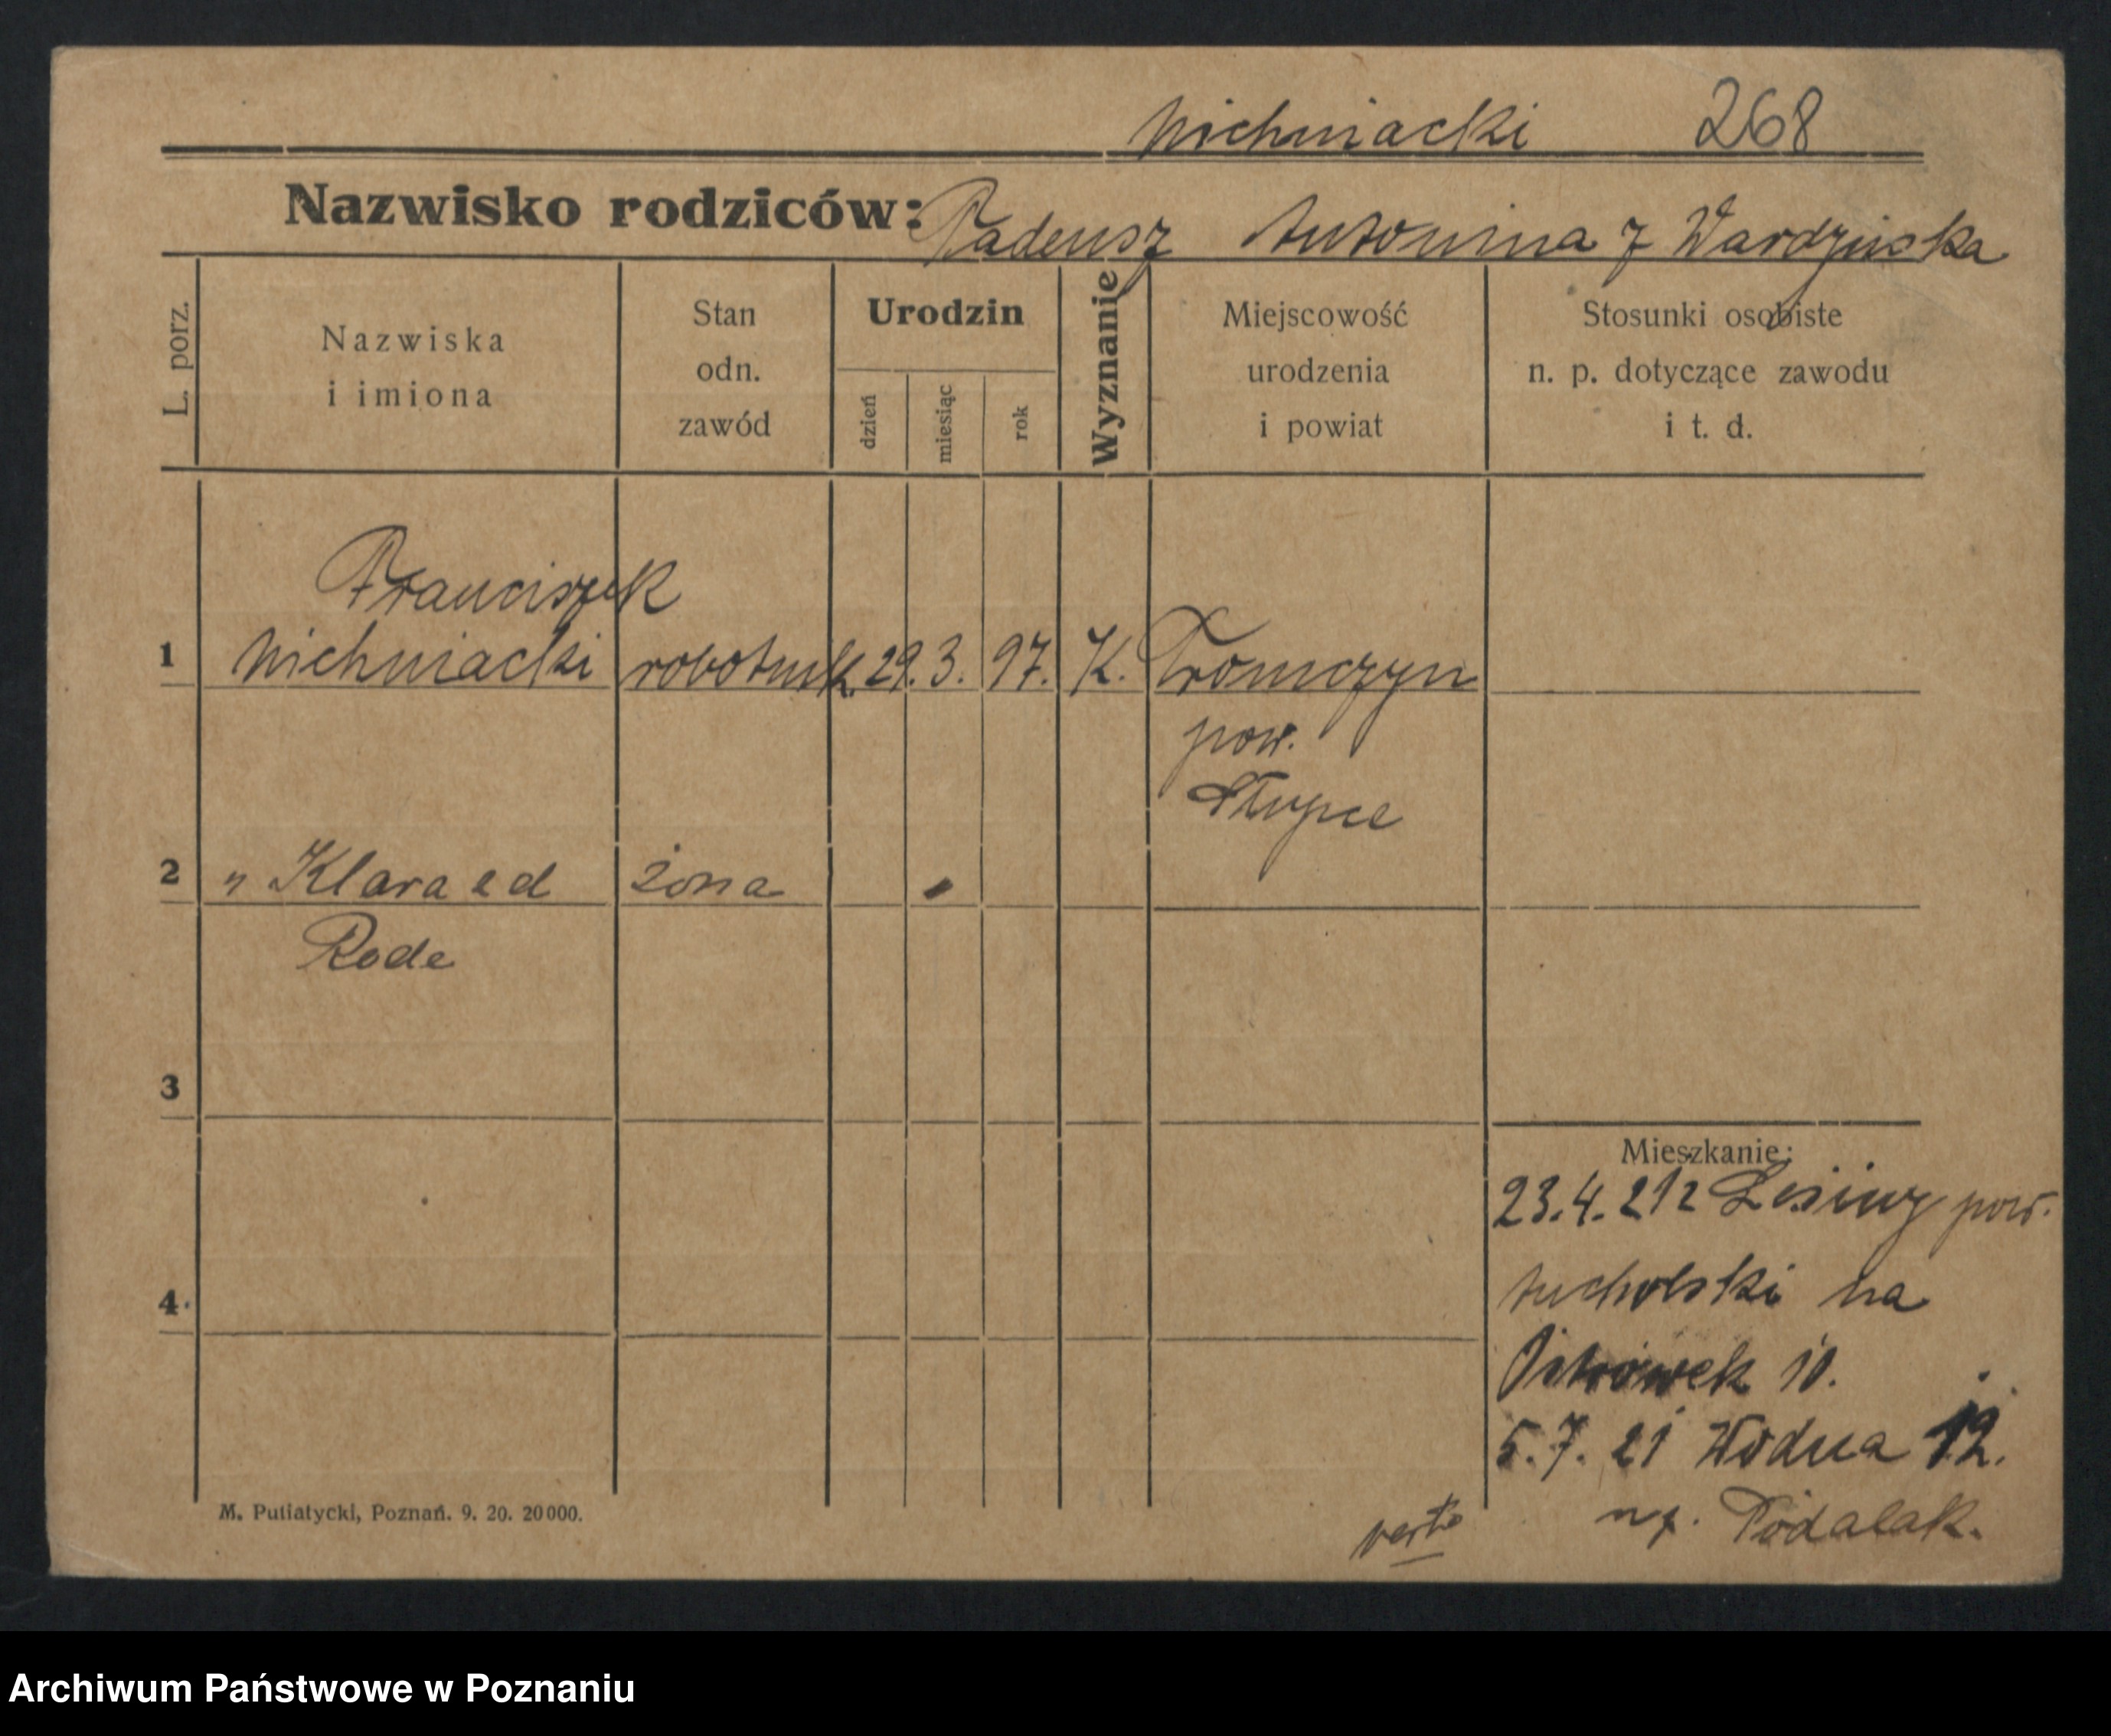 Michniacki 268
Nazwisko rodziców: Tadeusz Antonina z Wardzinska
L. porz.
Nazwiska i imiona
Stan odn. zawód
Urodzin
dzień
miesiąc
rok
Wyznanie
Miejscowość urodzenia i powiat
Stosunki osobiste n. p. dotyczące zawodu i t. d.
Franciszek
1 Michniacki robotnik. 29. 3. 97. K. Tromczyn
pow.
Słupce
2 " Klara żona
Rode
3
Mieszkanie:
23.4.21 z pow.
tucholski na
4.
Ostrówek 10.
5.7.21 Wodna 12.
M. Putiatycki, Poznań. 9. 20. 20000.
verte
Archiwum Państwowe w Poznaniu